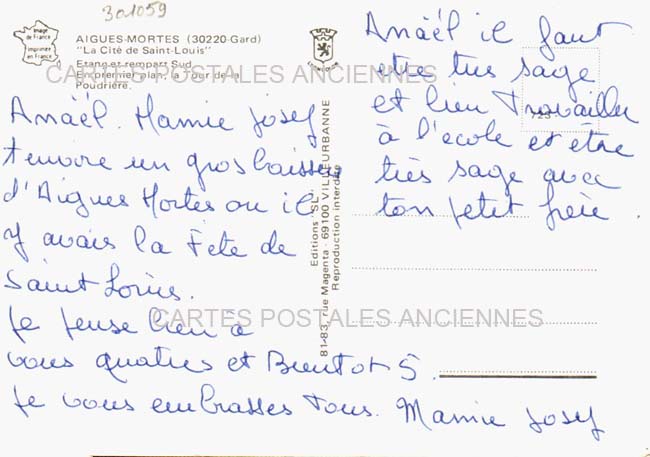 301059
Image de France
Imprimée en France
AIGUES-MORTES (30220-Gard)
"La Cité de Saint-Louis"
Etang et rempart Sud
En premier plan, la Tour de la
Poudrière.
CARTES POSTALES ANCIENNES
Anaël. Mamie Josef
t'envoie un gros baisser
d'Aigues Mortes ou il
y avais la Fête de
Saint Louis.
Je pense bien a
vous quatres et Bientot 5.
Je vous embrasses Tous. Mamie Josef
Editions "SL"
81-83, rue Magenta - 69100 VILLEURBANNE
Reproduction interdite
Anaël il faut
etre tres sage
et bien Travailler
à l'école et être
très sage avec
ton petit frère.
723
CARTES POSTALES ANCIENNES